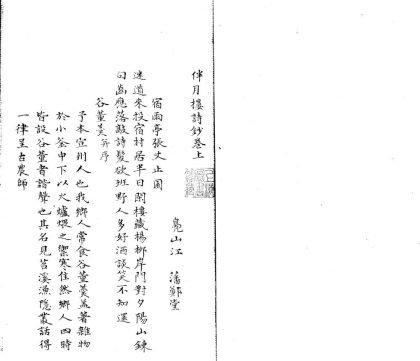 伴月樓詩鈔卷上
鳧山江 藩鄭堂
宿雨亭張丈止園
迷道來投宿村居半日閒樓藏楊柳岸門對夕陽山鍊
句齒應落敲詩髮欲斑野人多好酒談笑不知還
谷董羹并序
予本宣州人也我鄉人常食谷董羹蓋著雜物
於小釜中下以火爐煨之禦寒住然鄉人四時
皆設谷董者諧聲也其名見苕溪漁隱叢話得
一律呈古農師